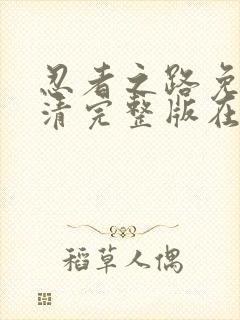 忍者之路免
清完整版在
稻草人偶